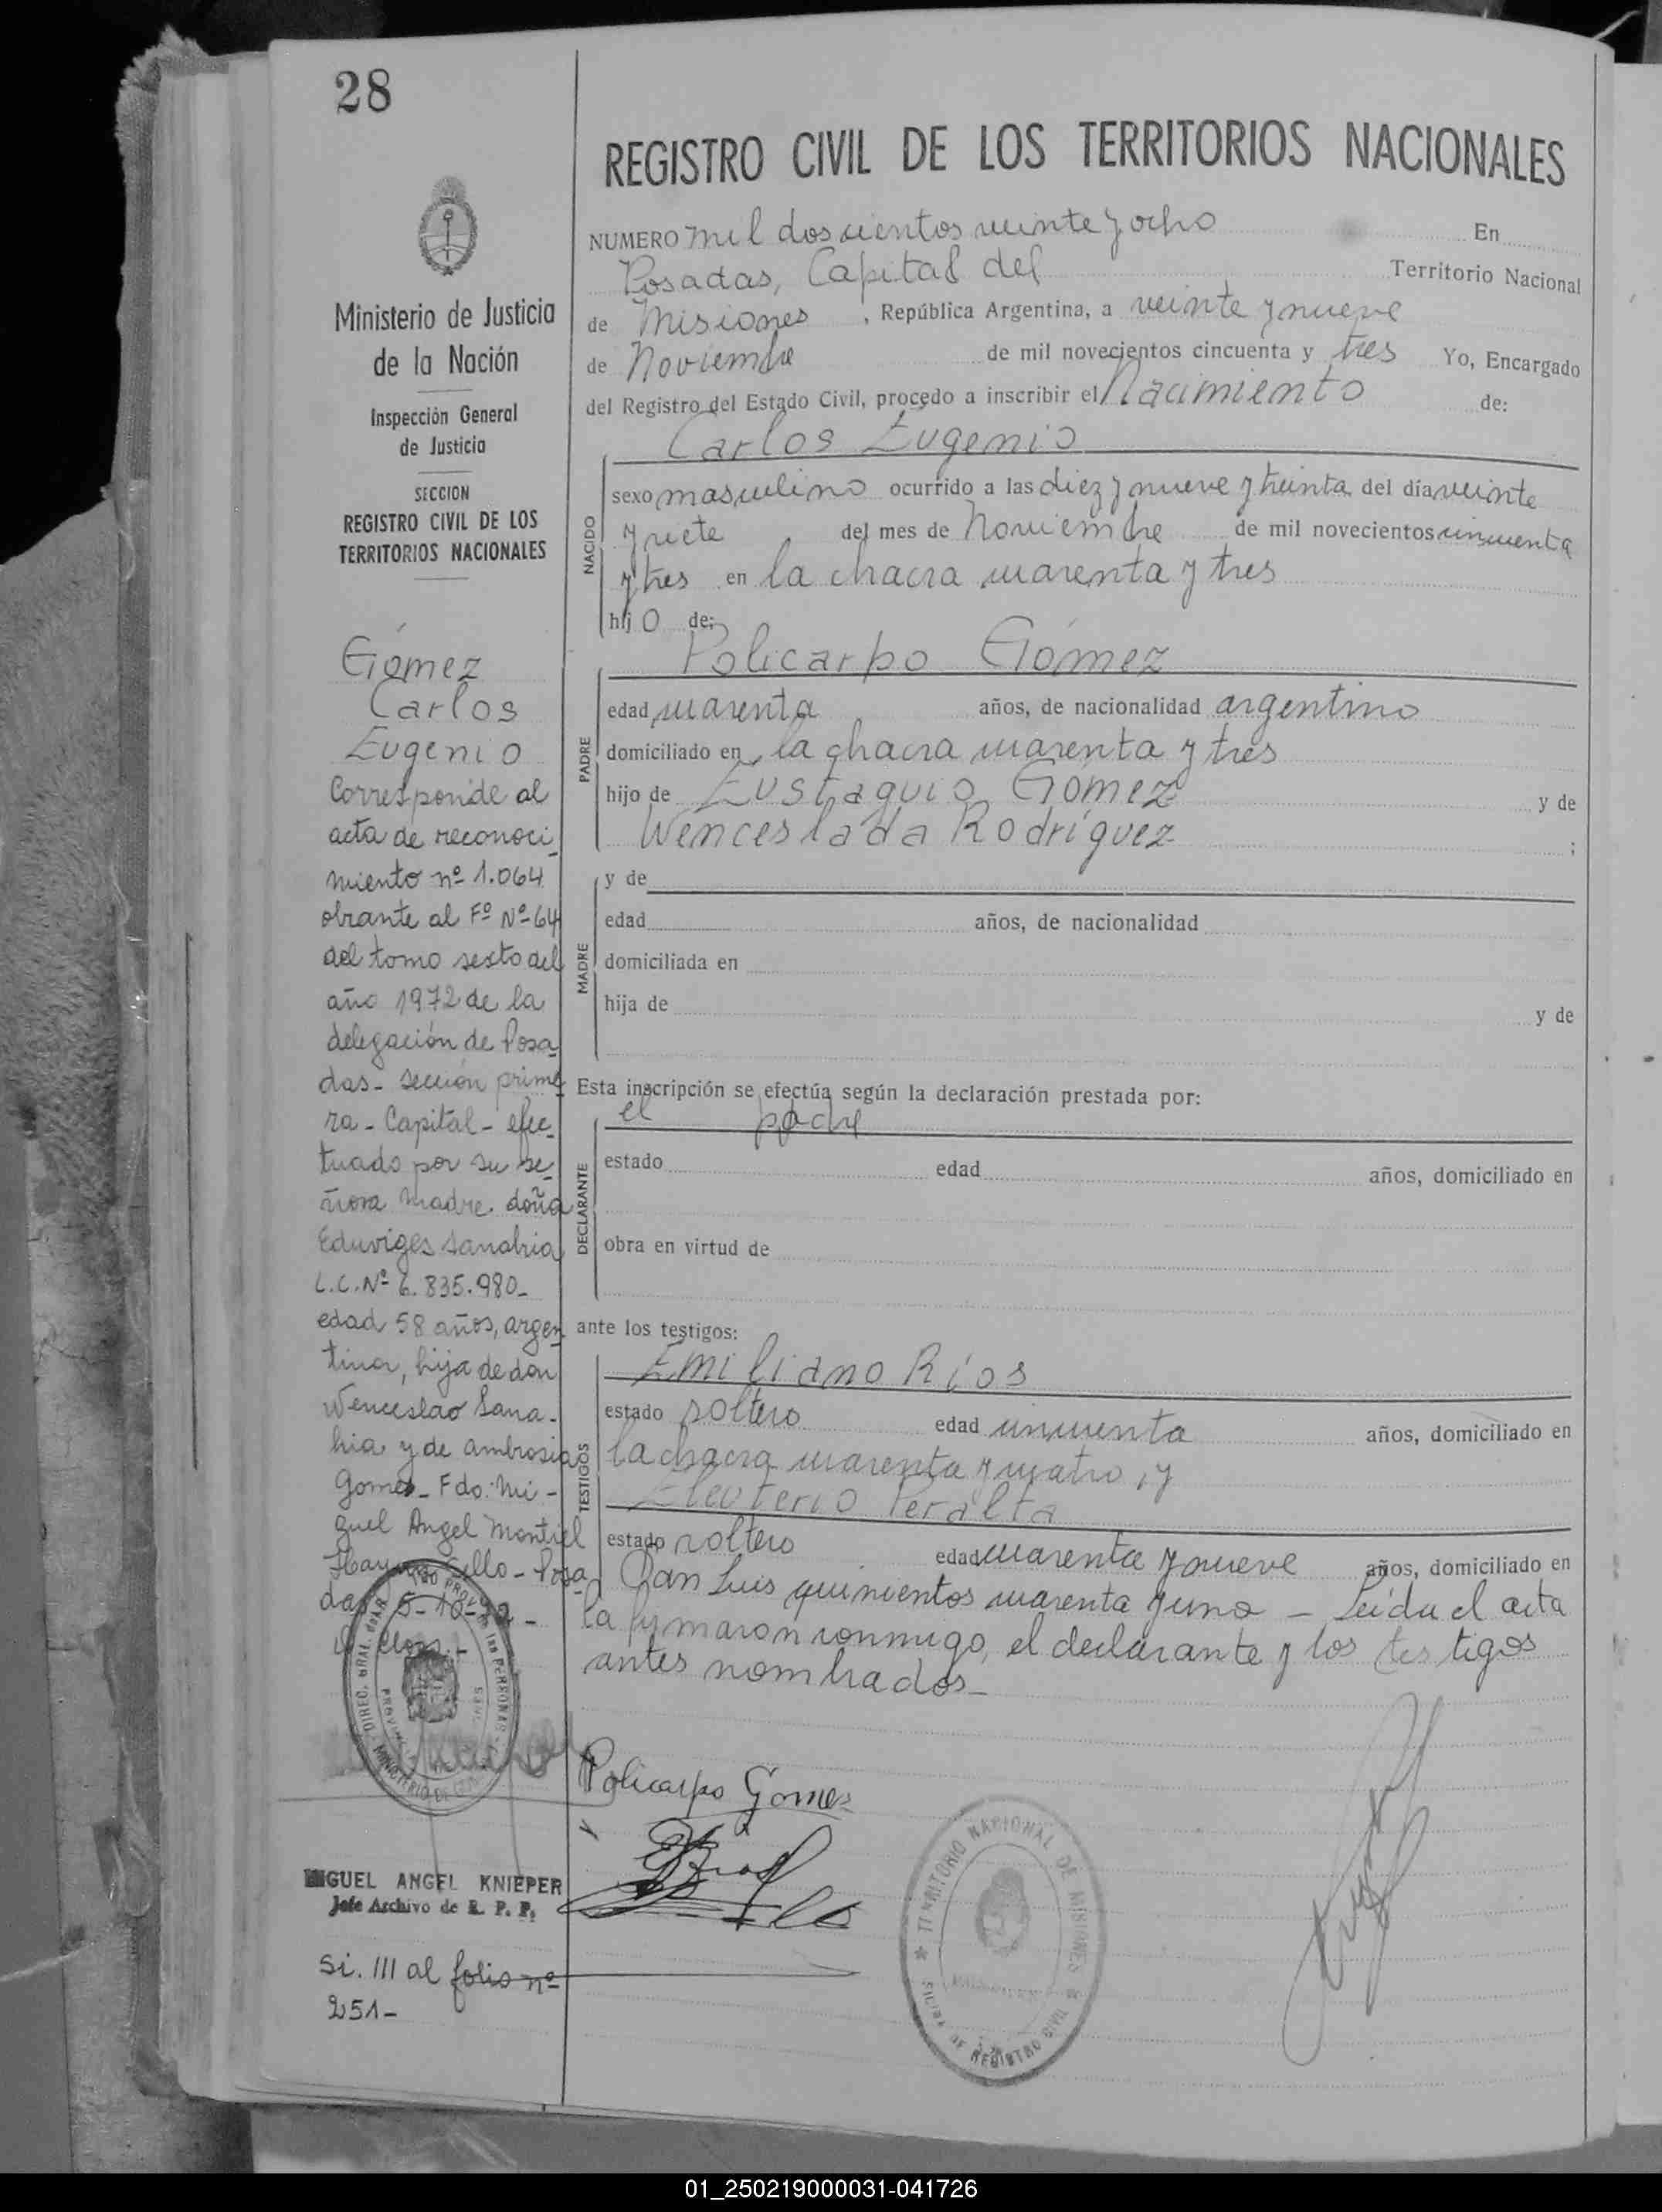 28
REGISTRO CIVIL DE LOS TERRITORIOS NACIONALES
Ministerio de Justicia
de la Nación
Inspección General
de Justicia
SECCION
REGISTRO CIVIL DE LOS
TERRITORIOS NACIONALES
Gómez
Carlos
Eugenio
Corresponde al
acta de reconoci_
miento nº 1.064
obrante al Fº Nº 64
del tomo sexto del
año 1972 de la
delegación de Posa_
das - sección prime_
ra - Capital - efec_
tuado por su se_
ñora madre doña
Eduviges Sanabria
L.C. Nº 6.835.980_
edad 58 años, argen_
tina, hija de don
Wenceslao Sana_
bria y de Ambrosia
Gomez_ Fdo: Mi_
guel Angel Montiel
Posa_
das 5-10-72_
MIGUEL ANGEL KNIEPER
Jefe Archivo de R. P. P.
Si. III al folio nº
251-
NUMERO mil doscientos veinte y ocho En
Posadas, Capital del Territorio Nacional
de Misiones, República Argentina, a veinte y nueve
de Noviembre de mil novecientos cincuenta y tres Yo, Encargado
del Registro del Estado Civil, procedo a inscribir el Nacimiento de:
Carlos Eugenio
NACIDO
sexo masculino ocurrido a las diez y nueve y treinta del día veinte
y siete del mes de Noviembre de mil novecientos cincuenta
y tres en la chacra cuarenta y tres
hijo de:
Policarpo Gómez
PADRE
edad cuarenta años, de nacionalidad argentino
domiciliado en la chacra cuarenta y tres
hijo de Eustaquio Gómez y de
Wenceslada Rodríguez ;
MADRE
y de
edad años, de nacionalidad
domiciliada en
hija de y de
Esta inscripción se efectúa según la declaración prestada por:
el padre
DECLARANTE
estado edad años, domiciliado en
obra en virtud de
ante los testigos:
Emiliano Ríos
TESTIGOS
estado soltero edad cincuenta años, domiciliado en
la chacra cuarenta y cuatro, y
Eleuterio Peralta
estado soltero edad cuarenta y nueve años, domiciliado en
San Luis quinientos cuarenta y uno - Leída el acta
la firmaron conmigo, el declarante y los testigos
antes nombrados_
Policarpo Gomez
TERRITORIO NACIONAL DE MISIONES
01_250219000031-041726